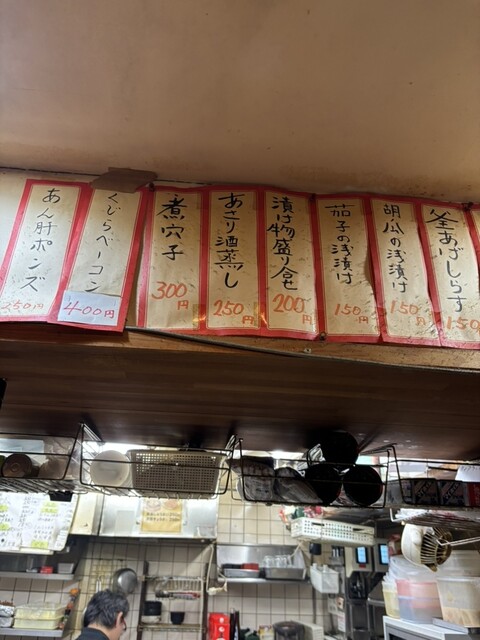 釜あげしらす
150
胡瓜の浅漬け
150円
茄子の浅漬け
150円
漬け物盛り合せ
200円
あさり酒蒸し
250円
煮穴子
300円
くじらベーコン
400円
あん肝ポンズ
350円